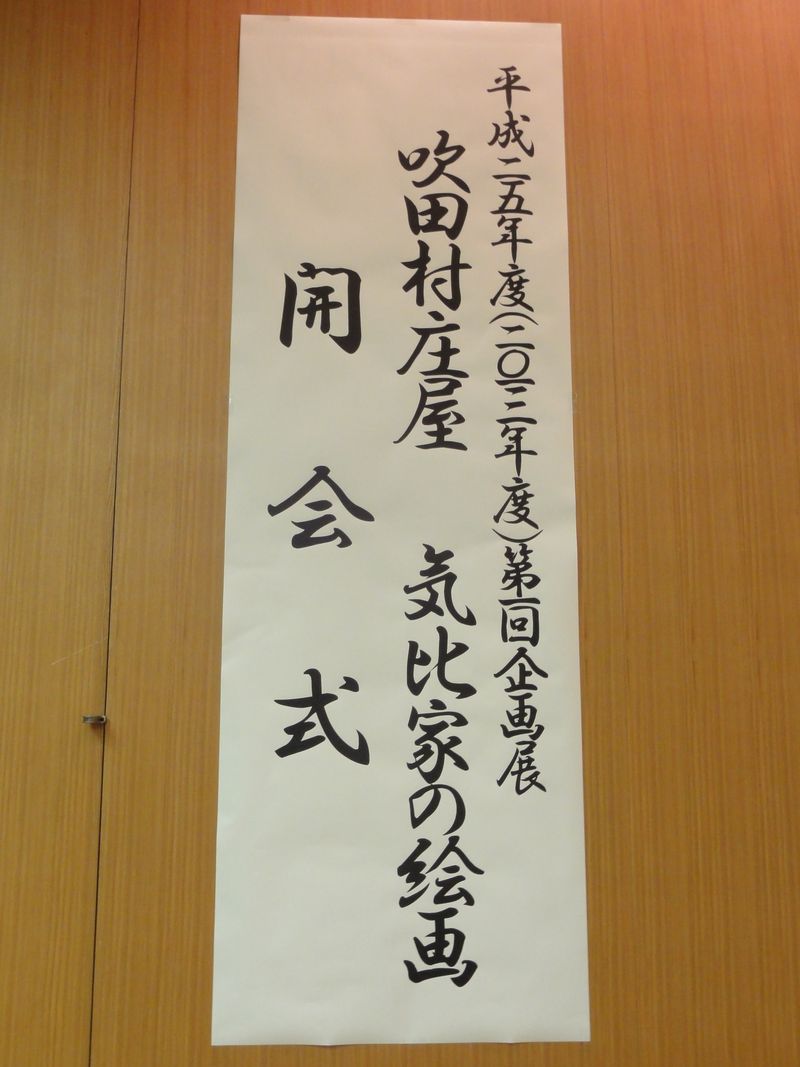 平成二五年度(二〇一三年度)第一回企画展
吹田村庄屋　気比家の絵画
開会式